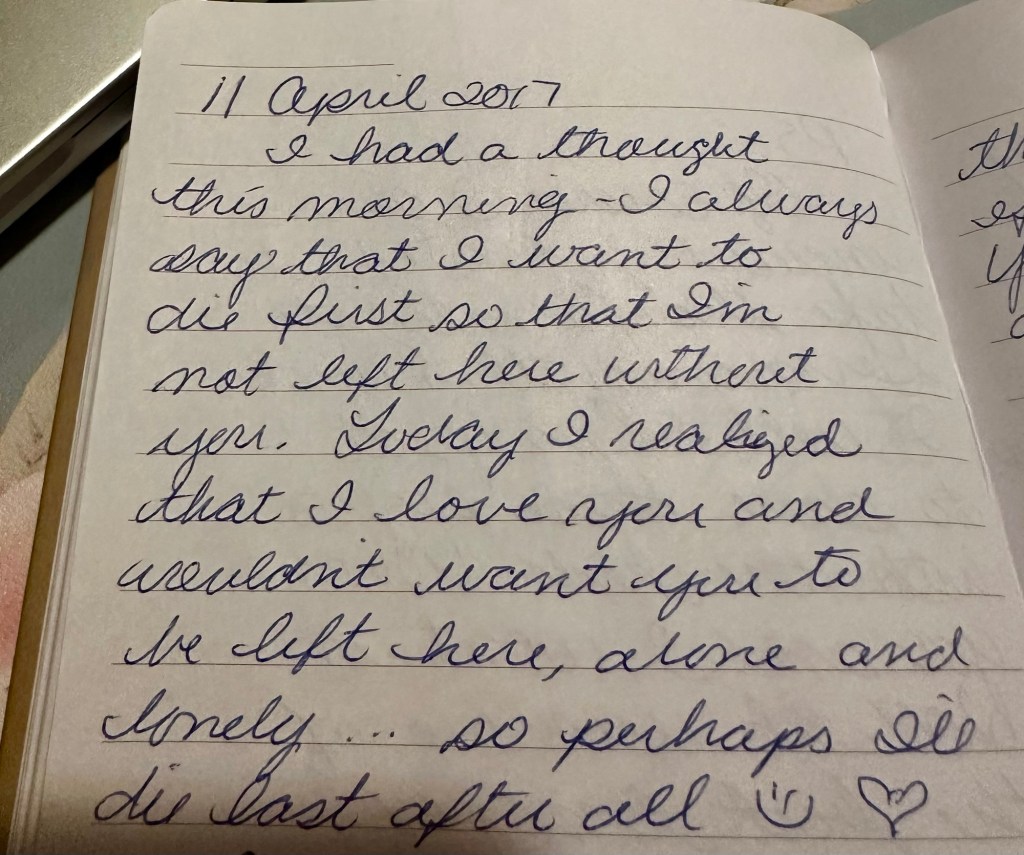 11 April 2017
I had a thought
this morning - I always
say that I want to
die first so that I'm
not left here without
you. Today I realized
that I love you and
wouldn't want you to
be left here, alone and
lonely ... so perhaps I'll
die last after all
th